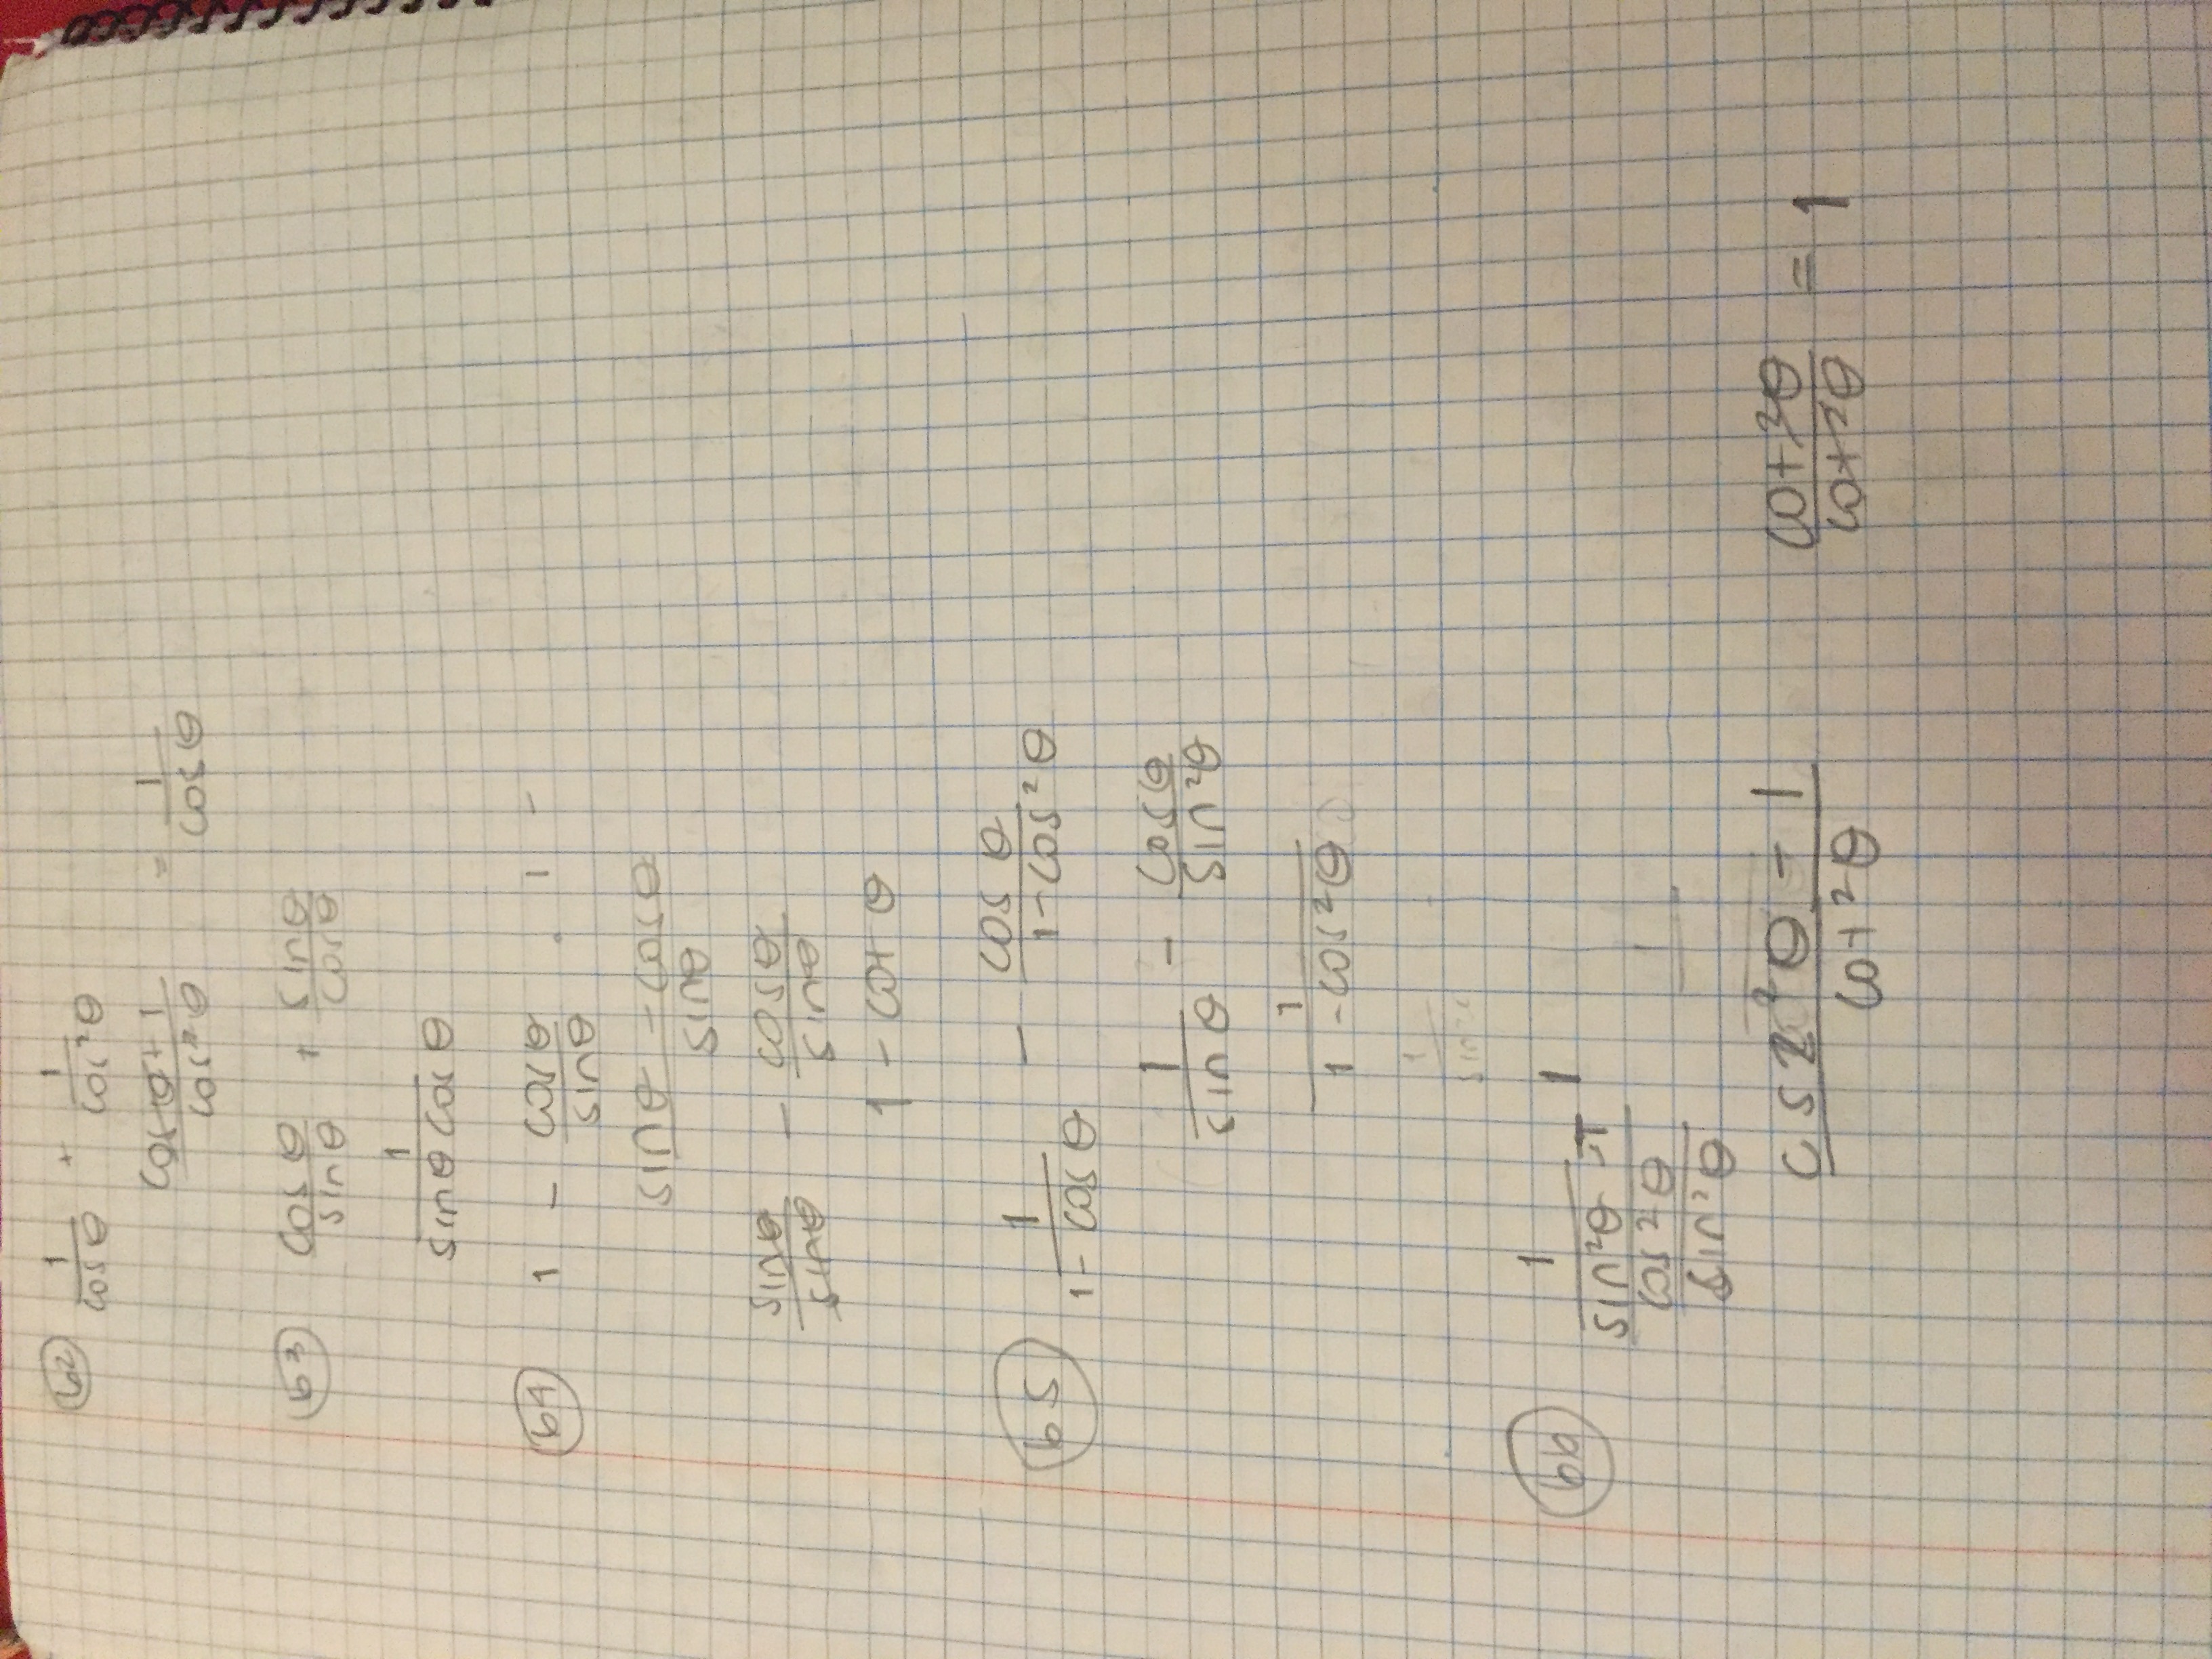 62 1/cosθ + 1/cos²θ
cosθ+1/cos²θ = 1/cosθ
63 cosθ/sinθ + sinθ/cosθ
1/sinθcosθ
64 1 - cosθ/sinθ · 1 -
sinθ - cosθ/sinθ
sinθ/sinθ - cosθ/sinθ
1 - cotθ
65 1/1-cosθ - cosθ/1-cos²θ
1/sinθ - cosθ/sin²θ
1/1-cos²θ
1/sin
66 1/sin²θ - 1
cos²θ/sin²θ
cs2²θ-1/cot²θ cot²θ/cot²θ = 1